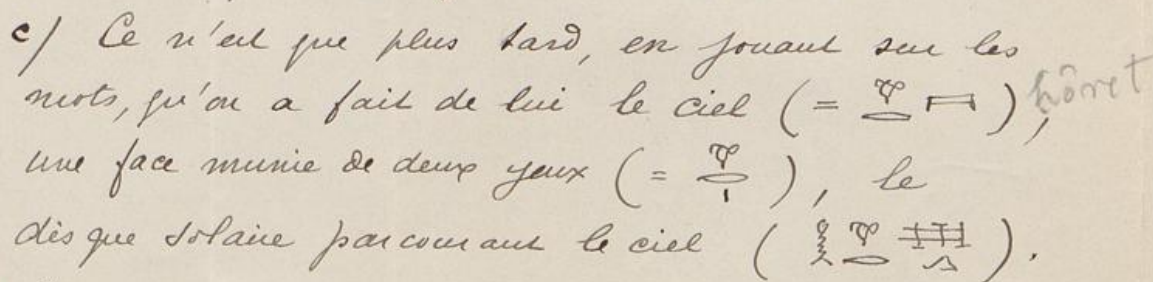 c/ Ce n'est que plus tard, en jouant sur les
mots, qu'on a fait de lui le ciel (= 𓁷𓂋𓇯), hôret
une face munie de deux yeux (= 𓁷𓂋𓏤), le
disque solaire parcourant le ciel (𓎛𓁷𓂋𓈐𓂻).